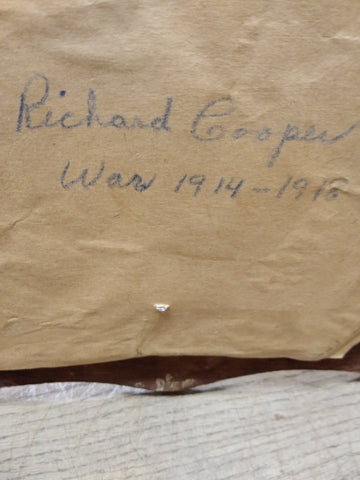 Richard Cooper
War 1914-1918